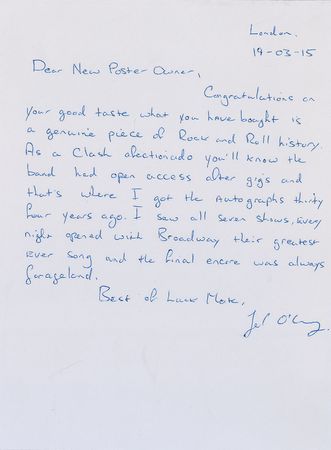 London.
19-03-15
Dear New Poster Owner,
Congratulations on
your good taste what you have bought is
a genuine piece of Rock and Roll history.
As a Clash afectionado you'll know the
band had open access after gigs and
that's where I got the Autographs thirty
four years ago. I saw all seven shows, every
night opened with Broadway their greatest
ever song and the final encore was always
Garageland.
Best of Luck Mate,